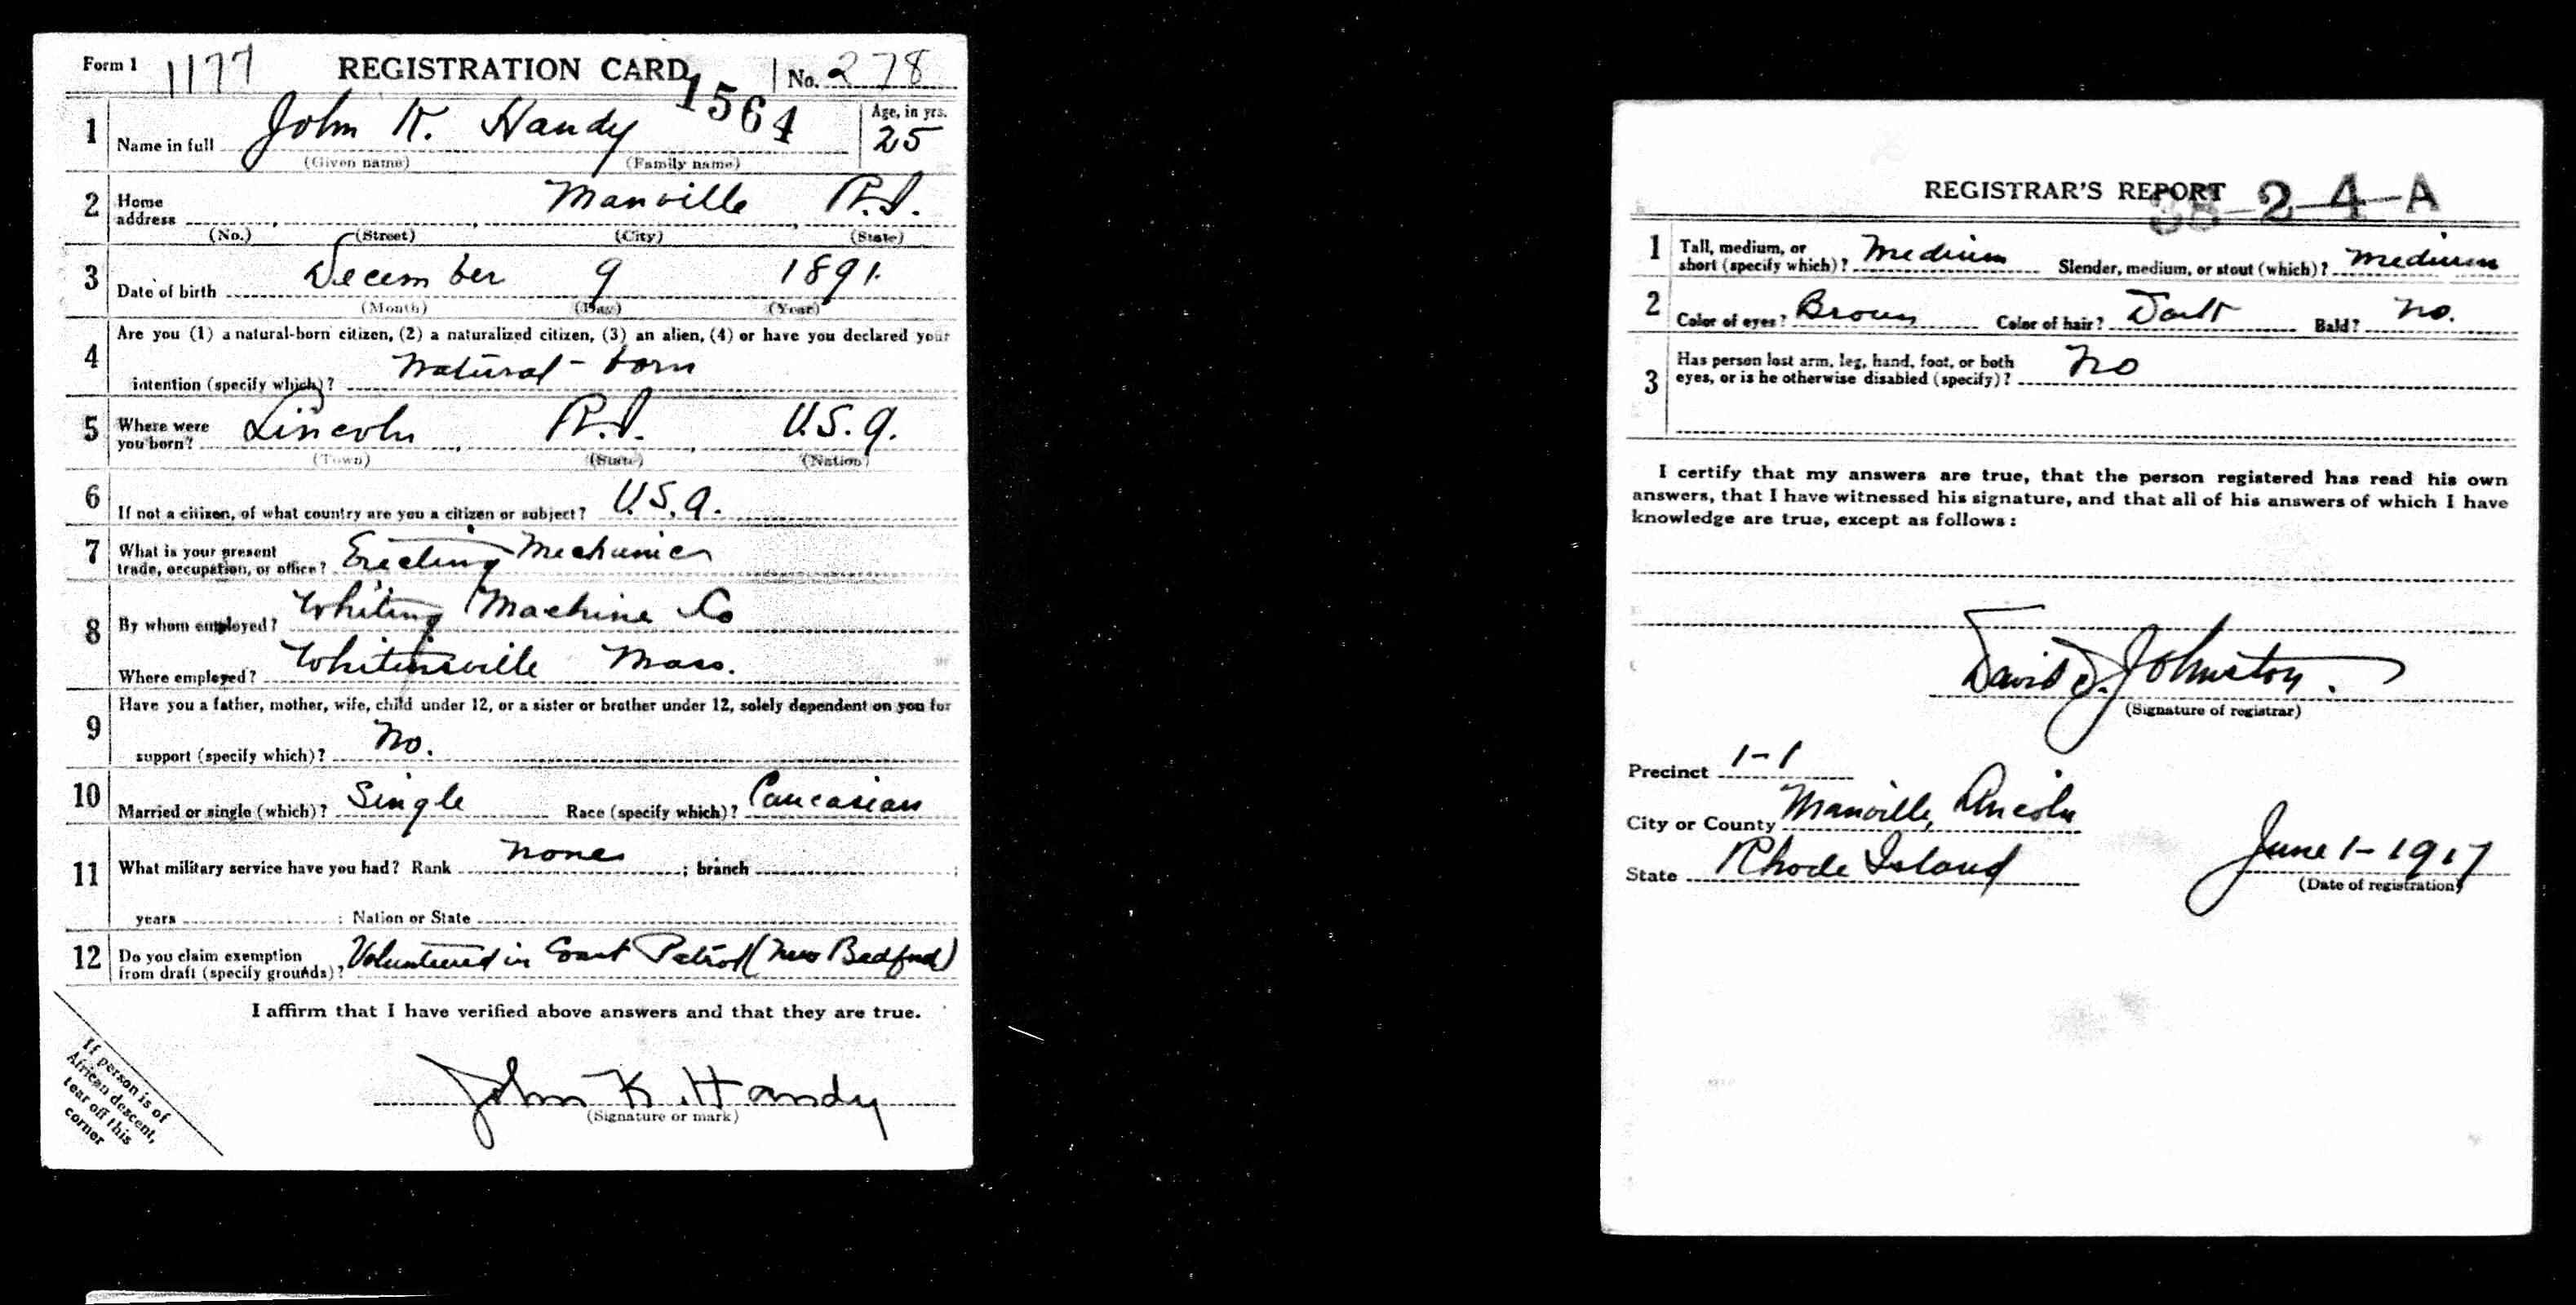 Form 1 1177 REGISTRATION CARD No. 278
1564
1 Name in full John K. Handy Age, in yrs. 25
(Given name) (Family name)
2 Home address Manville R.I.
(No.) (Street) (City) (State)
3 Date of birth December 9 1891.
(Month) (Day) (Year)
4 Are you (1) a natural-born citizen, (2) a naturalized citizen, (3) an alien, (4) or have you declared your
intention (specify which)? Natural-born
5 Where were you born? Lincoln, R.I. U.S.A.
(Town) (State) (Nation)
6 If not a citizen, of what country are you a citizen or subject? U.S.A.
7 What is your present trade, occupation, or office? Erecting Mechanic
8 By whom employed? Whiting Machine Co
Where employed? Whitinsville Mass.
9 Have you a father, mother, wife, child under 12, or a sister or brother under 12, solely dependent on you for
support (specify which)? No.
10 Married or single (which)? Single Race (specify which)? Caucasian
11 What military service have you had? Rank None ; branch ;
years ; Nation or State
12 Do you claim exemption from draft (specify grounds)? Volunteered in Coast Patrol (New Bedford)
I affirm that I have verified above answers and that they are true.
John K. Handy
(Signature or mark)
If person is of
African descent,
tear off this
corner
REGISTRAR'S REPORT 2-4-A
1 Tall, medium, or short (specify which)? Medium Slender, medium, or stout (which)? Medium
2 Color of eyes? Brown Color of hair? Dark Bald? No.
3 Has person lost arm, leg, hand, foot, or both
eyes, or is he otherwise disabled (specify)? No
I certify that my answers are true, that the person registered has read his own
answers, that I have witnessed his signature, and that all of his answers of which I have
knowledge are true, except as follows:
David J. Johnston.
(Signature of registrar)
Precinct 1-1
City or County Manville, Lincoln
State Rhode Island June 1-1917
(Date of registration)